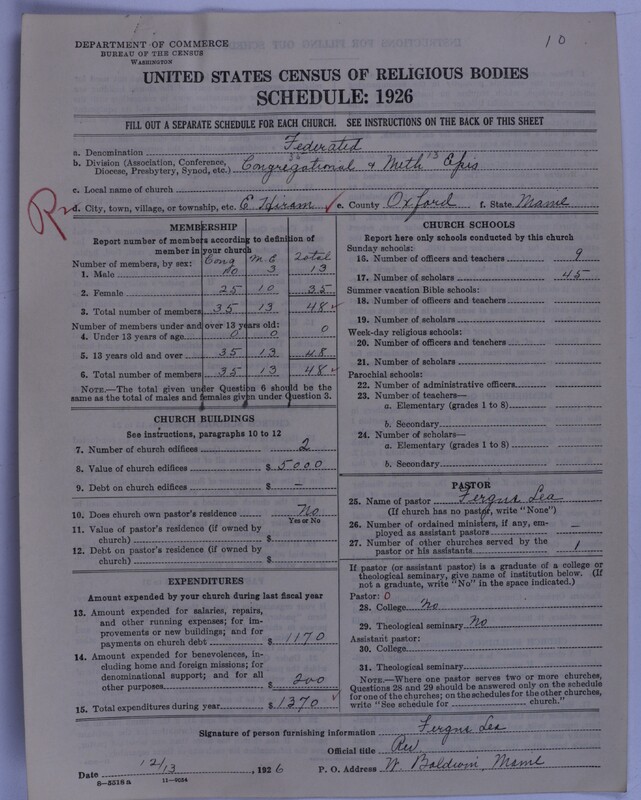 10
DEPARTMENT OF COMMERCE
BUREAU OF THE CENSUS
WASHINGTON
UNITED STATES CENSUS OF RELIGIOUS BODIES
SCHEDULE: 1926
FILL OUT A SEPARATE SCHEDULE FOR EACH CHURCH. SEE INSTRUCTIONS ON THE BACK OF THIS SHEET
a. Denomination Federated
b. Division (Association, Conference, Diocese, Presbytery, Synod, etc.) Congregational & Meth 13 Epis
c. Local name of church
d. City, town, village, or township, etc. E Hiram e. County Oxford f. State Maine
MEMBERSHIP
Report number of members according to definition of member in your church
Number of members, by sex: Cong M.E Total
1. Male 10 3 13
2. Female 25 10 35
3. Total number of members 35 13 48
Number of members under and over 13 years old:
4. Under 13 years of age 0 0 0
5. 13 years old and over 35 13 48
6. Total number of members 35 13 48
NOTE.—The total given under Question 6 should be the same as the total of males and females given under Question 3.
CHURCH BUILDINGS
See instructions, paragraphs 10 to 12
7. Number of church edifices 2
8. Value of church edifices $ 5000
9. Debt on church edifices $ —
10. Does church own pastor's residence No
Yes or No
11. Value of pastor's residence (if owned by church) $
12. Debt on pastor's residence (if owned by church) $
EXPENDITURES
Amount expended by your church during last fiscal year
13. Amount expended for salaries, repairs, and other running expenses; for improvements or new buildings; and for payments on church debt $ 1170
14. Amount expended for benevolences, including home and foreign missions; for denominational support; and for all other purposes $ 200
15. Total expenditures during year $ 1370
CHURCH SCHOOLS
Report here only schools conducted by this church
Sunday schools:
16. Number of officers and teachers 9
17. Number of scholars 45
Summer vacation Bible schools:
18. Number of officers and teachers
19. Number of scholars
Week-day religious schools:
20. Number of officers and teachers
21. Number of scholars
Parochial schools:
22. Number of administrative officers
23. Number of teachers—
a. Elementary (grades 1 to 8)
b. Secondary
24. Number of scholars—
a. Elementary (grades 1 to 8)
b. Secondary
PASTOR
25. Name of pastor Fergus Lea
(If church has no pastor, write "None")
26. Number of ordained ministers, if any, employed as assistant pastors —
27. Number of other churches served by the pastor or his assistants 1
If pastor (or assistant pastor) is a graduate of a college or theological seminary, give name of institution below. (If not a graduate, write "No" in the space indicated.)
Pastor: 0
28. College No
29. Theological seminary No
Assistant pastor:
30. College
31. Theological seminary
NOTE.—Where one pastor serves two or more churches, Questions 28 and 29 should be answered only on the schedule for one of the churches; on the schedules for the other churches, write "See schedule for church."
Signature of person furnishing information Fergus Lea
Official title Rev
Date 12/13, 1926 P. O. Address W. Baldwin, Maine
8—5318 a 11—9054